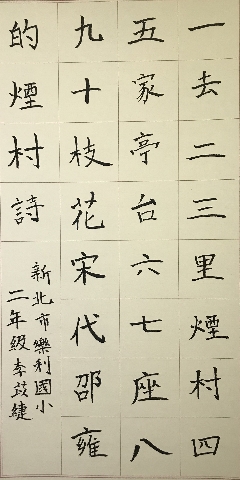 一去二三里煙村四
五家亭台六七座八
九十枝花宋代邵雍
的煙村詩
新北市樂利國小
二年級李苡緁